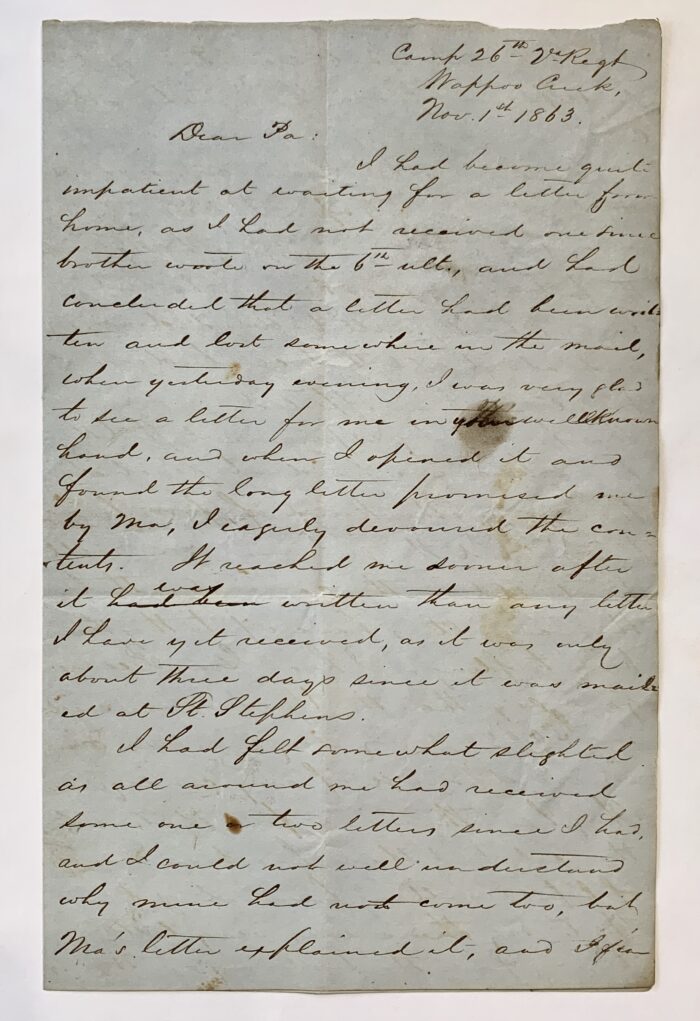 Camp 26th Va Regt
Wappoo Creek,
Nov. 1st 1863.
Dear Pa:
I had become quite
impatient at waiting for a letter from
home, as I had not received one since
brother wrote on the 6th ult., and had
concluded that a letter had been writ-
ten and lost somewhere in the mail,
when yesterday evening, I was very glad
to see a letter for me in your well known
hand, and when I opened it and
found the long letter promised me
by Ma, I eagerly devoured the con-
tents. It reached me sooner after
it had been was written than any letter
I have yet received, as it was only
about three days since it was mail-
ed at St. Stephens.
I had felt somewhat slighted
as all around me had received
some one or two letters since I had,
and I could not well understand
why mine had not come too, but
Ma's letter explained it, and I